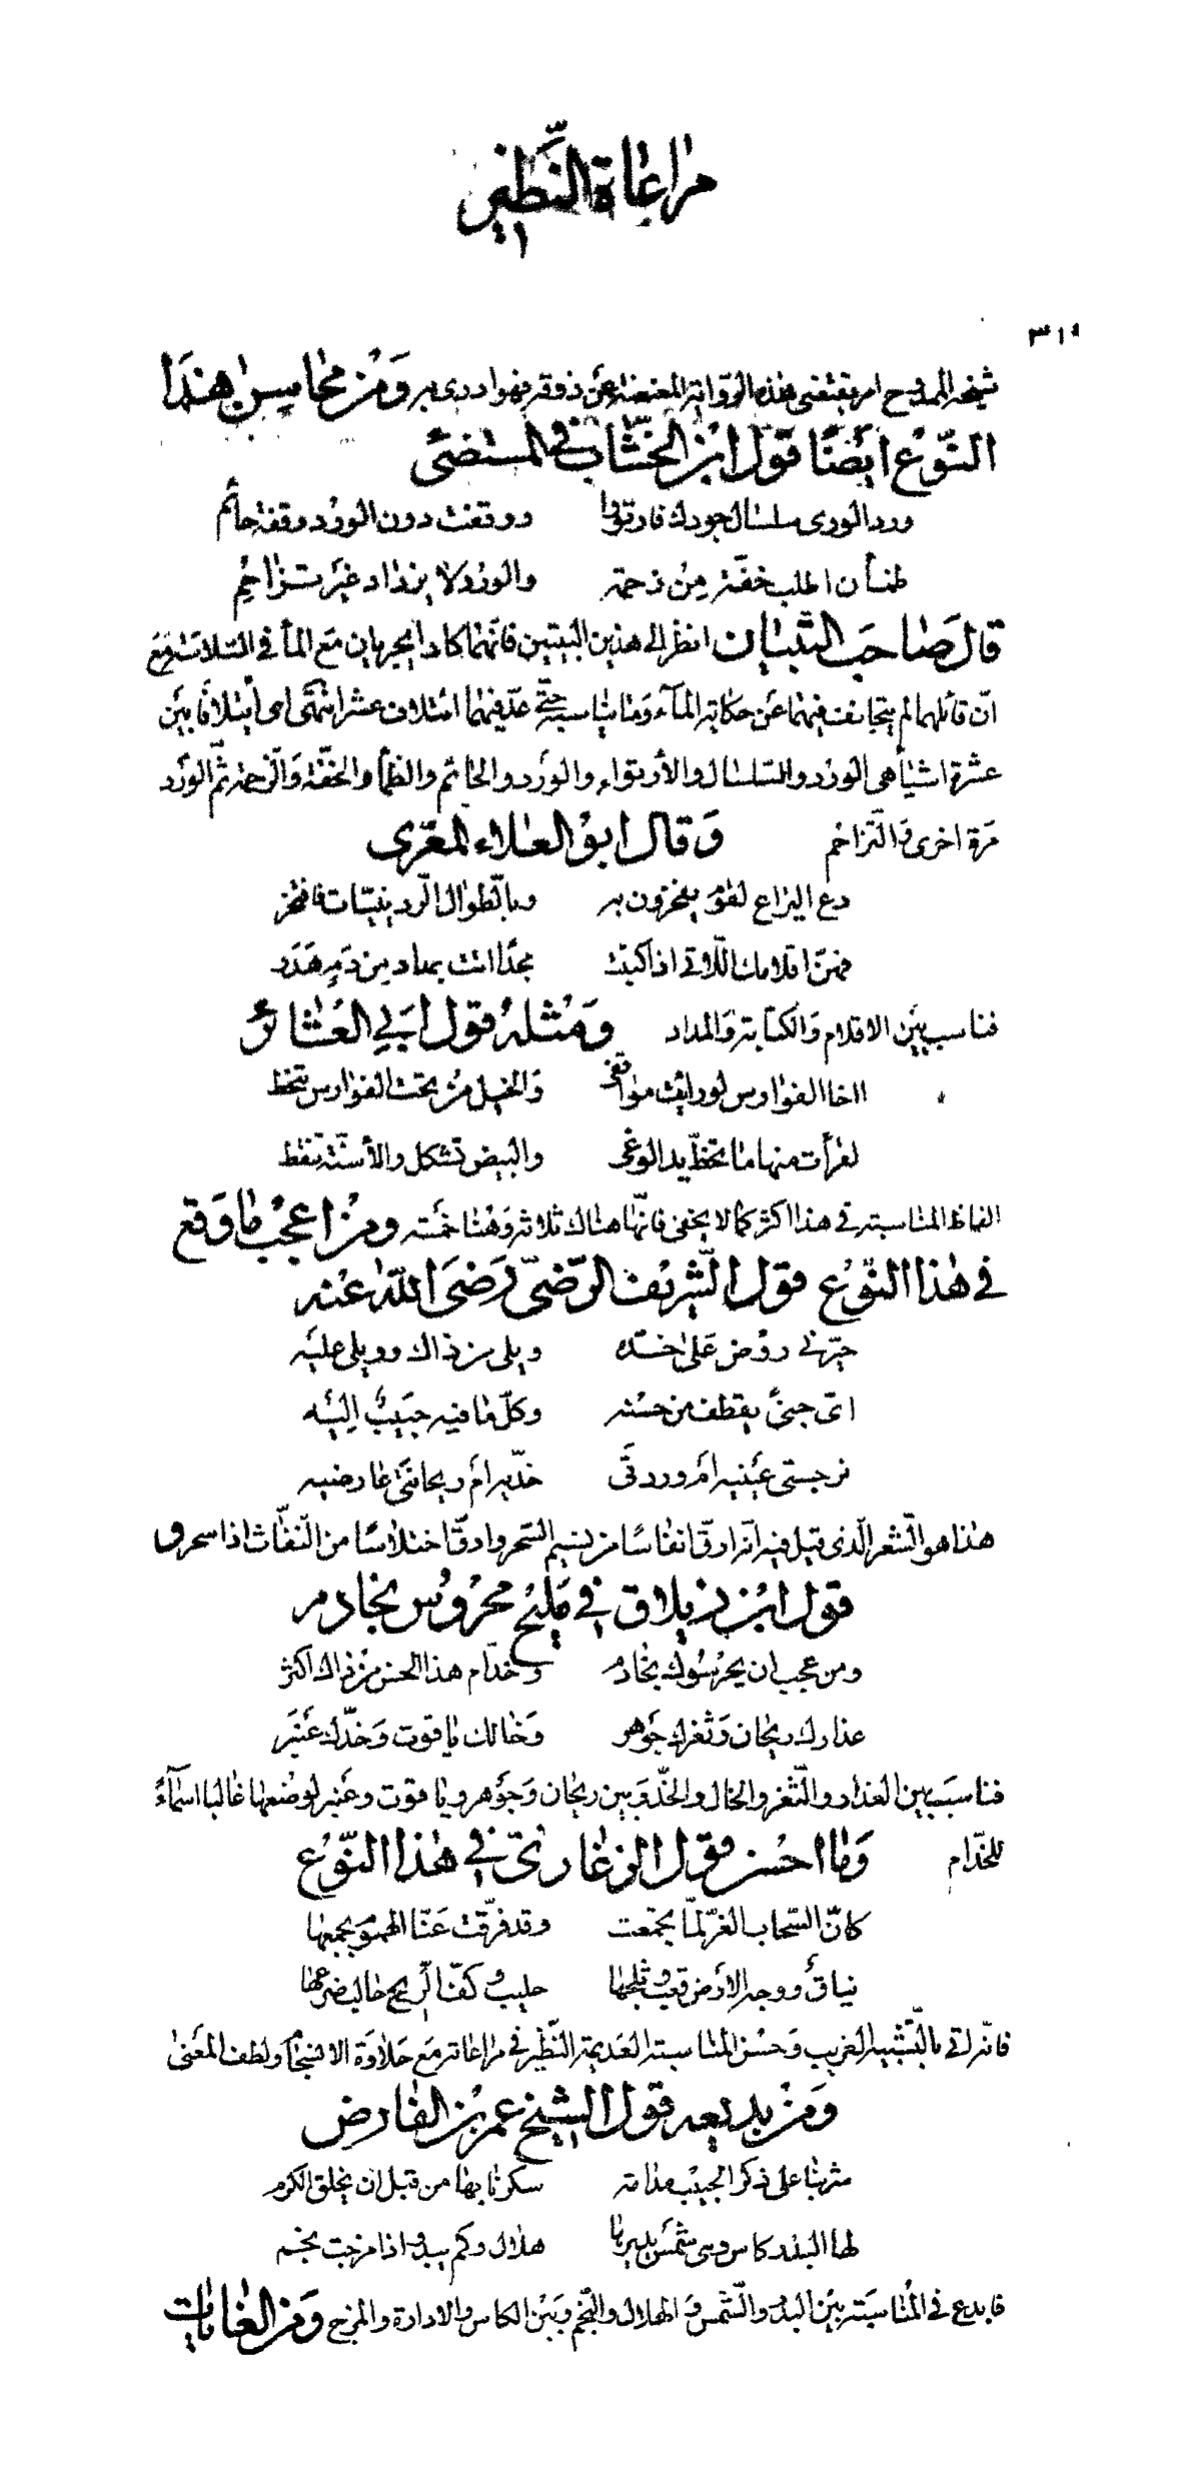 مراعاة النظير
٣١٥
شيخه الممدوح امر يقتضى هذه الرواية المعنعنة عن ذوقه فهو ادرى به ومن محاسن هذا
النوع ايضًا قول ابن الخشّاب فى المستضئ
ورد الورى سلسال جودك فارتووا ووقفت دون الورد وقفة حائم
ظمأن اطلب خفّة من زحمة والورد لا يزداد غير تزاحم
قال صاحب التبيان انظر الى هذين البيتين فانهما كادا يجريان مع المأ فى السّلاسة مع
انّ قائلهما لم يتجانف فيهما عن حكاية المآء وما يناسبه حتّى عدّ فيهما ائتلاف عشر انتهى اى أيتلافا بين
عشرة اشيأ هى الورد والسّلسال والأرتواء والورد والحائم والظمأ والخفّة والزحمة ثمّ الورد
مرة اخرى والتّزاحم وقال ابو العلاء المعرّى
دع اليراع لقوم يفخرون به وبالطّوال الرّدينيّات فافتخر
فهنّ اقلامك اللّاتى اذا كتبت مجدًا اتت بمداد من دمٍ هدر
فناسب بين الاقلام والكتابة والمداد ومثله قول أبى العشائر
ااخا الفوارس لو رأيت مواقفى والخيل من تحت الفوارس تنحط
لقرأت منها ما تخطّ يد الوغى والبيض تشكل والأسنّة تنقط
الفاظ المناسبة فى هذا اكثر كما لا يخفى فانّها هناك ثلاثة وهنا خمسة ومن اعجب ما وقع
فى هذا النّوع قول الشّريف الرّضىّ رضى اللّه عنه
حيّرنى روض على خدّه ويلى من ذاك وويلى عليه
اىّ جنىً يقطف من حسنه وكلّ ما فيه حبيبٌ اليه
نرجستى عينيه ام وردتى خدّيه ام ريحانتى عارضيه
هذا هو الشّعر الّذى قيل فيه انّه ارقّ انفاسًا من نسيم السّحر وادقّ اختلاسًا من النّفّاث اذا سحر و
قول ابن زيلاق فى مليح محروس بخادم
ومن عجب ان يحرسوك بخادم وخدّام هذا الحسن من ذاك اكثر
عذارك ريحان وثغرك جوهر وخالك ياقوت وخدّك عنبر
فناسب بين العذار والثّغر والخال والخدّ وبين ريحان وجوهر وياقوت وعنبر لوضعها غالبا اسمآءً
للخدّام وما احسن قول الزغارىّ فى هذا النّوع
كانّ السّحاب الغرّ لمّا تجمّعت وقد فرّقت عنّا الهموم بجمعها
نياق ووجه الارض قعب وثلجها حليب وكفّ الرّيح حالب ضرعها
فانّه اتى بالتّشبيه الغريب وحسن المناسبة العديمة النّظير فى مراعاته مع حلاوة الانسجام ولطف المعنى
ومن بديعه قول الشيخ عمر بن الفارض
شربنا على ذكر الحبيب مدامة سكرنا بها من قبل ان يخلق الكرم
لها البدر كاس وهى شمس يديرها هلال وكم يبدو اذا مزجت نجم
فابدع فى المناسبة بين البدر والشّمس و الهلال والنّجم وبين الكاس والادارة والمزج ومن الغايات